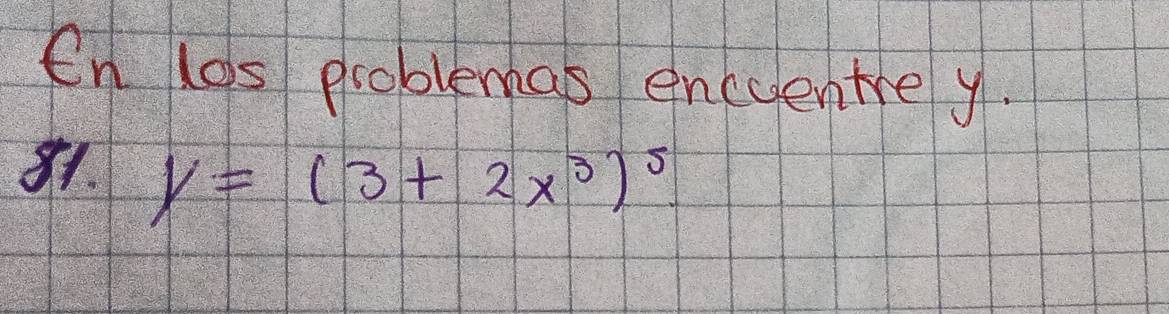 En los problemas encuentre y.
81. y = (3 + 2x³)⁵